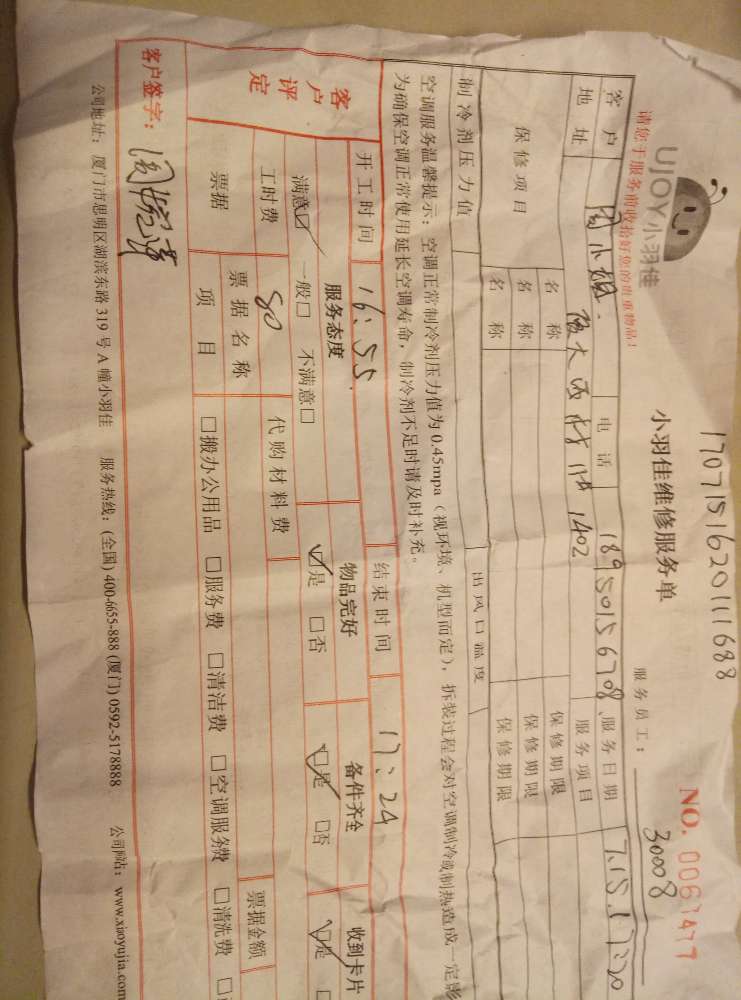 17071516201111688
UJOY小羽佳
小羽佳维修服务单
NO. 0067477
请您于服务前收拾好您的贵重物品!
服务员工: 30008
客户 周小姐 电话 18950156708 服务日期 7.15.17:20
地址 1402 服务项目
保修项目 名称 保修期限
名称 保修期限
名称 保修期限
制冷剂压力值 出风口温度
空调服务温馨提示:空调正常制冷剂压力值为0.45mpa(视环境、机型而定),拆装过程会对空调制冷或制热造成一定影
为确保空调正常使用延长空调寿命,制冷剂不足时请及时补充。
开工时间 16:55 结束时间 17:24
客户评定 服务态度 物品完好 备件齐全 收到卡片
满意☑ 一般□ 不满意□ ☑是 □否 ☑是 □否 ☑是 □
工时费 80 代购材料费
票据 票据名称 票据金额
项目 □搬办公用品 □服务费 □清洁费 □空调服务费 □清洗费 □
客户签字:
公司地址:厦门市思明区湖滨东路319号A幢小羽佳 服务热线:(全国)400-6655-888 (厦门)0592-5178888 公司网站:www.xiaoyujia.com